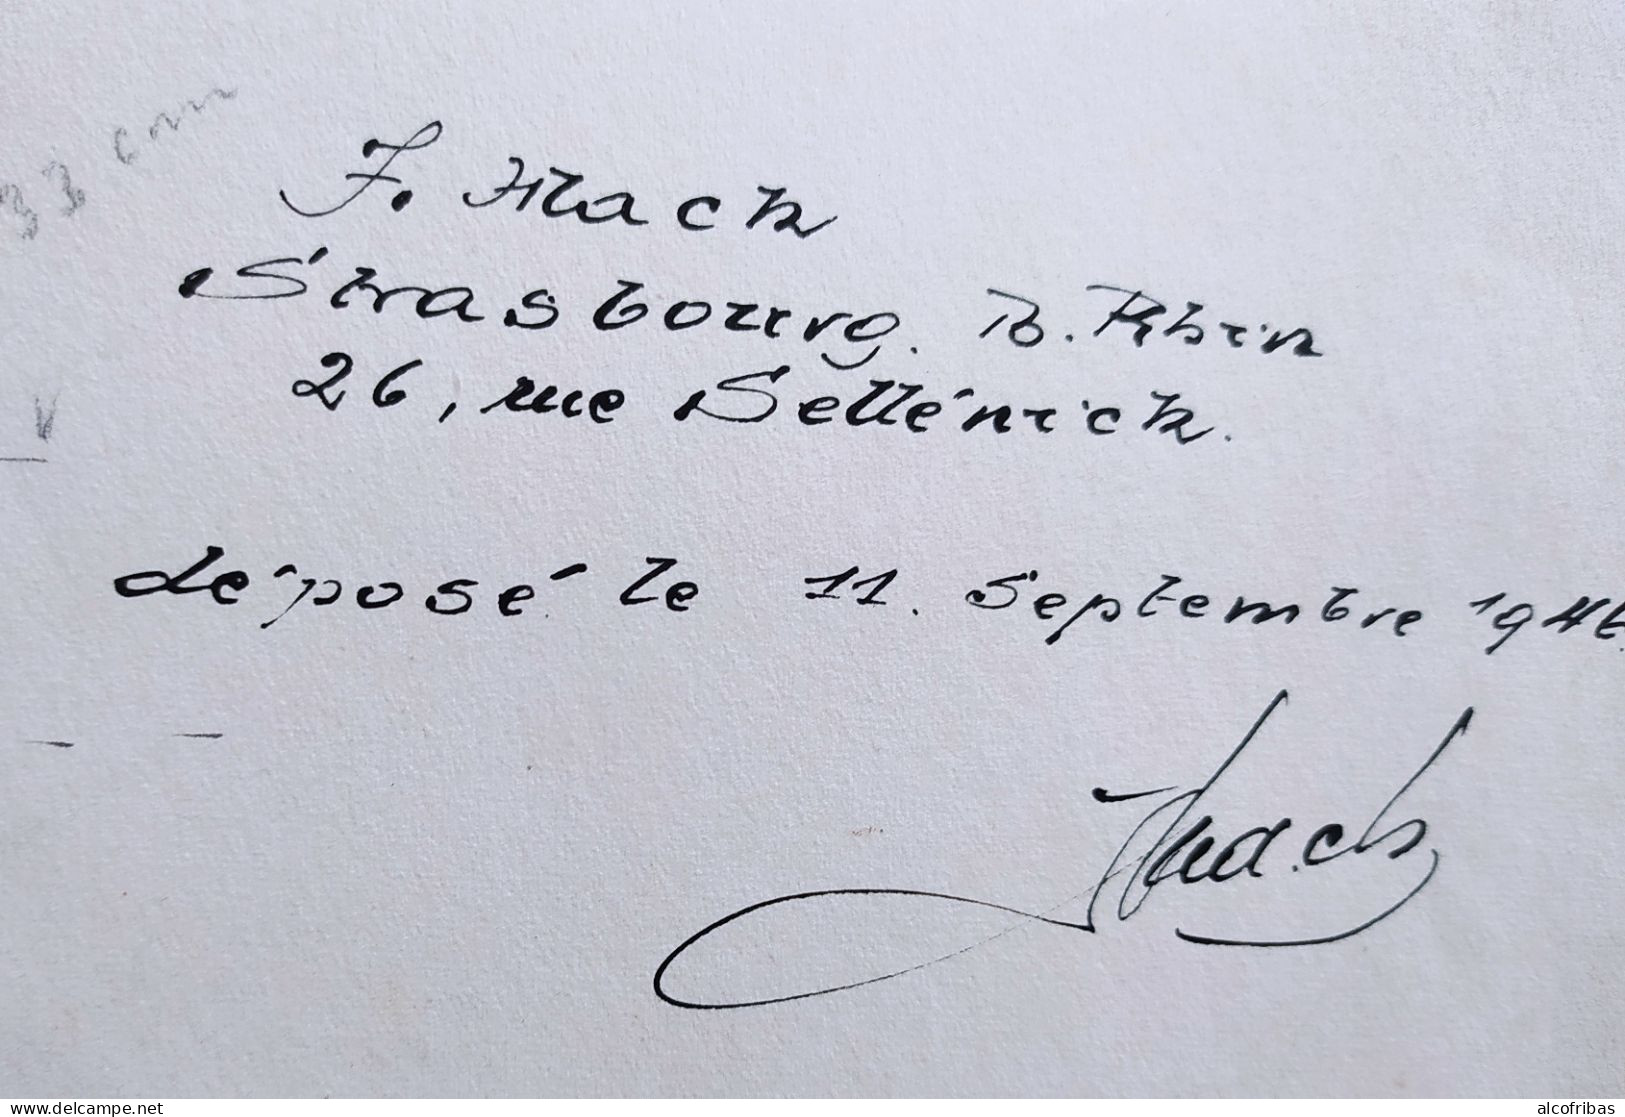 33 cm
J. Mack
Strasbourg. B. Rhin
26, rue Sellénick.
déposé le 11. Septembre 1946.
© www.delcampe.net
alcofribas